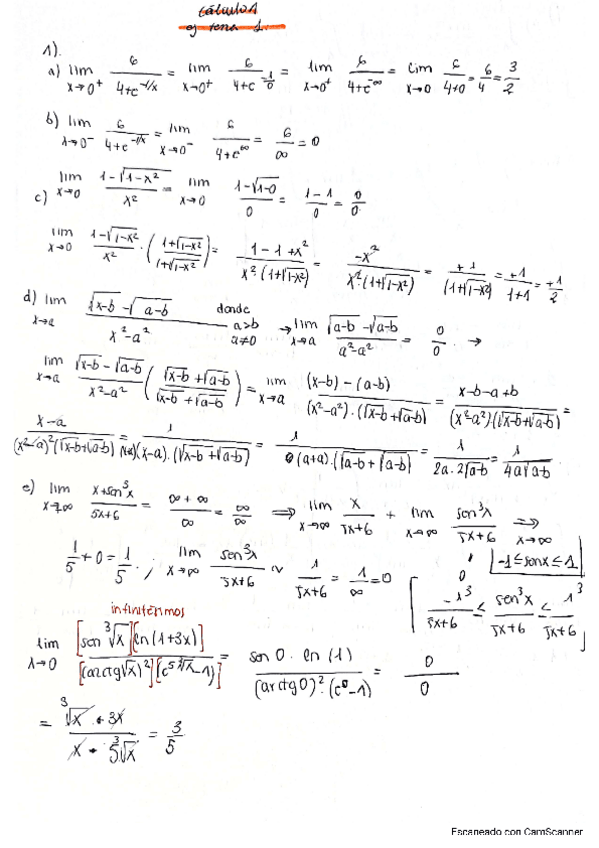 Cálculo 1
ej tema 1.
1).
a) lim x→0⁺ 6/(4+e^(-1/x)) = lim x→0⁺ 6/(4+e^(-1/0)) = lim x→0⁺ 6/(4+e^(-∞)) = lim x→0 6/(4+0) = 6/4 = 3/2
b) lim x→0⁻ 6/(4+e^(-1/x)) = lim x→0⁻ 6/(4+e^∞) = 6/∞ = 0
c) lim x→0 (1-√(1-x²))/x² = lim x→0 (1-√(1-0))/0 = (1-1)/0 = 0/0
lim x→0 (1-√(1-x²))/x² · ((1+√(1-x²))/(1+√(1-x²))) = (1-1+x²)/(x²·(1+√(1-x²))) = -x²/(x²·(1+√(1-x²))) = +1/(1+√(1-x²)) = +1/(1+1) = +1/2
d) lim x→a (√(x-b) - √(a-b))/(x²-a²) donde a>b a≠0 → lim x→a (√(a-b) - √(a-b))/(a²-a²) = 0/0 . →
lim x→a (√(x-b) - √(a-b))/(x²-a²) ((√(x-b)+√(a-b))/(√(x-b)+√(a-b))) = lim x→a ((x-b)-(a-b))/((x²-a²)·(√(x-b)+√(a-b))) = (x-b-a+b)/((x²-a²)(√(x-b)+√(a-b))) =
= 1/((a+a)·(√(a-b)+√(a-b))) = 1/(2a·2√(a-b)) = 1/(4a√(a-b))
e) lim x→∞ (x+sen³x)/(5x+6) = (∞+∞)/∞ = ∞/∞ ⟹ lim x→∞ x/(5x+6) + lim x→∞ sen³x/(5x+6) ⟹ x→∞
1/5+0 = 1/5 . ; lim x→∞ sen³x/(5x+6) ~ 1/(5x+6) = 1/∞ = 0
-1≤senx≤1
-1³/(5x+6) ≤ sen³x/(5x+6) ≤ 1³/(5x+6)
infinitésimos
lim x→0 [sen ³√x][ln(1+3x)]/([(arctg√x)²][(e^(5³√x)-1)]) = sen0·ln(1)/((arctg0)²·(e⁰-1)) = 0/0
= (³√x · 3x)/(x · 5³√x) = 3/5
Escaneado con CamScanner